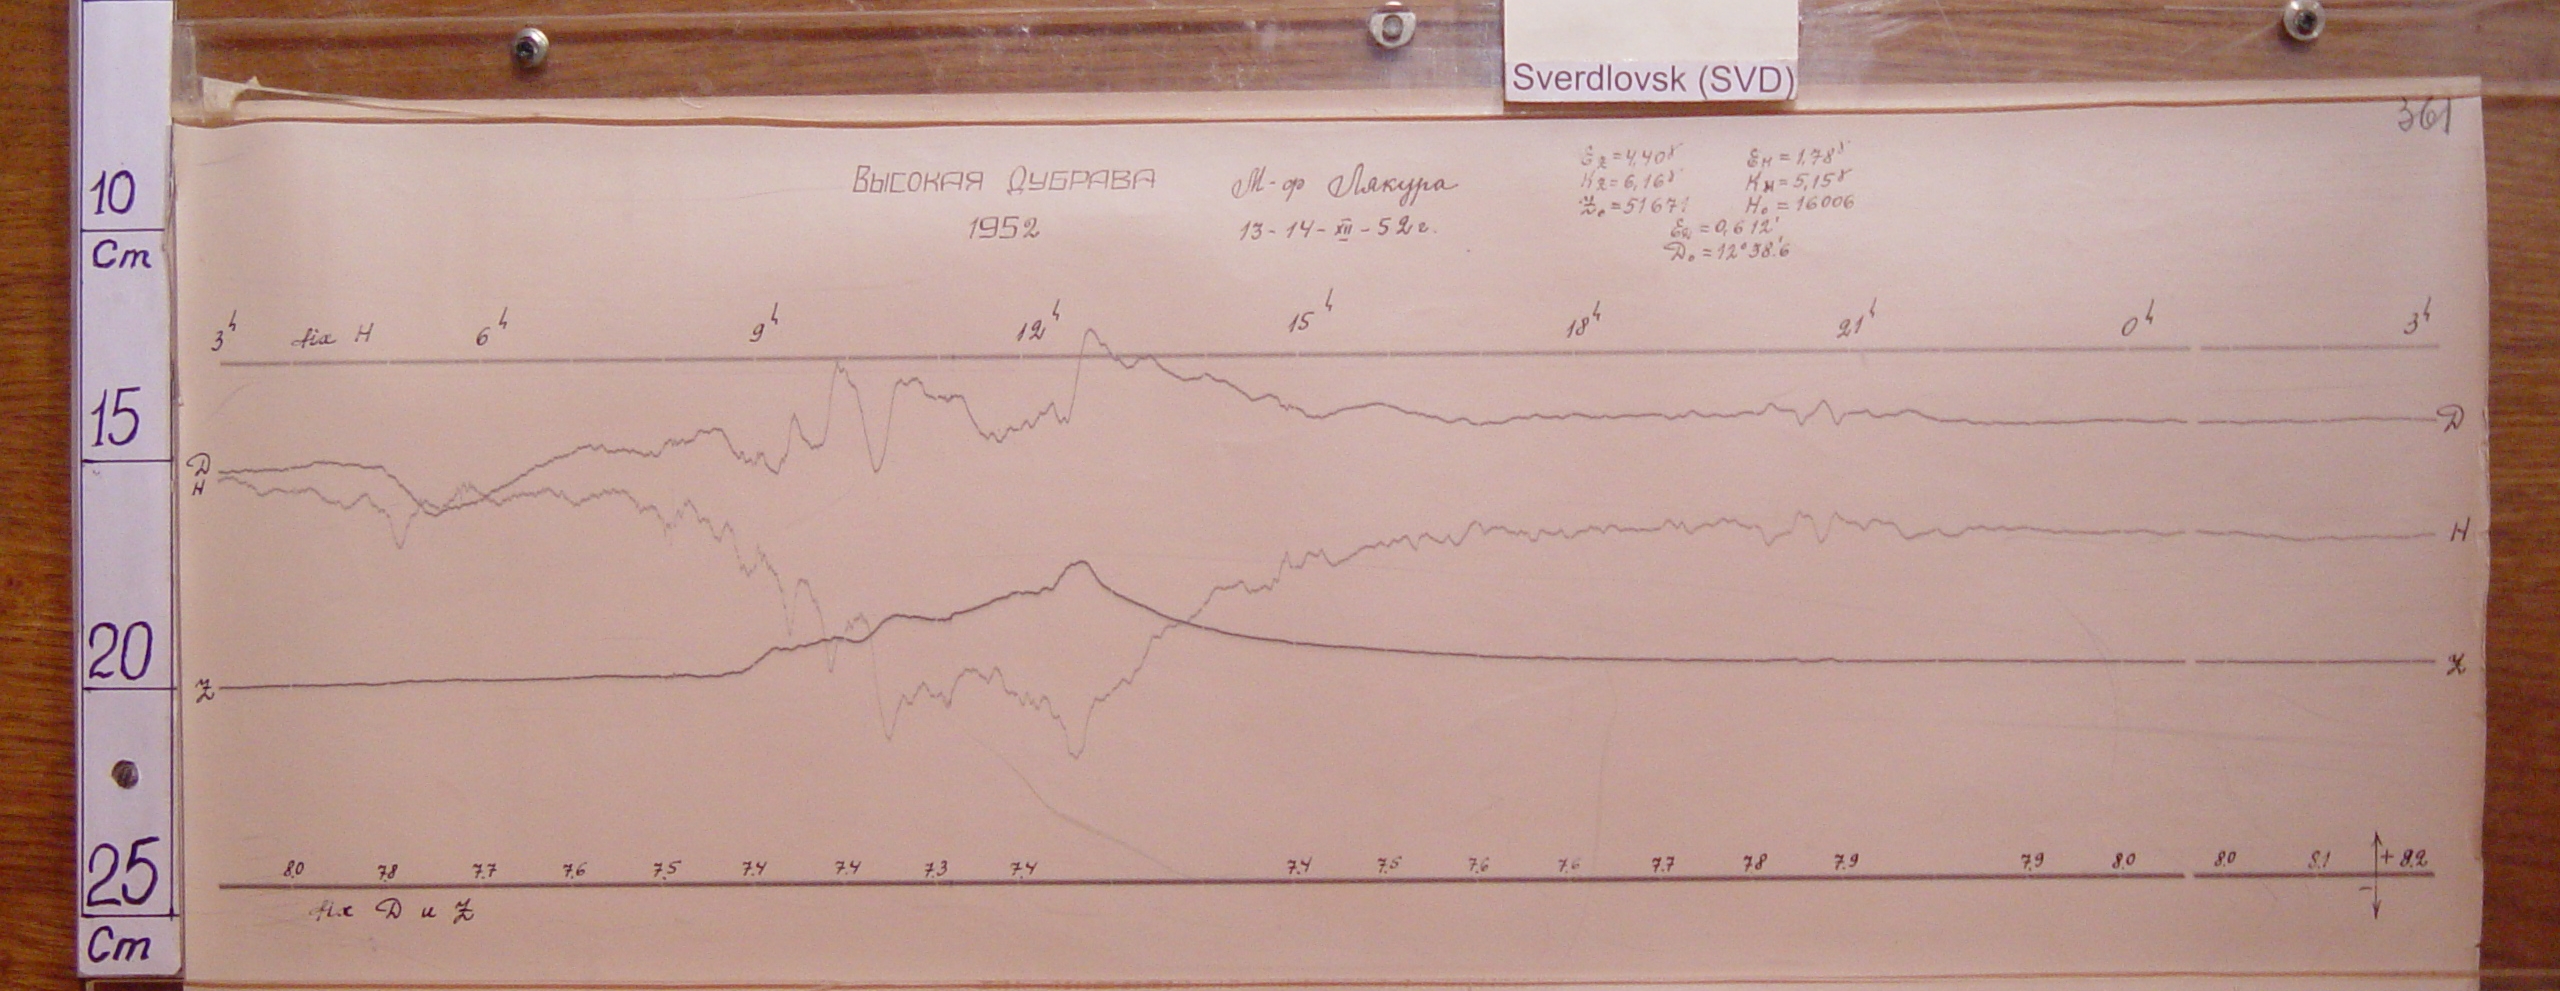 Sverdlovsk (SVD)
361
ВЫСОКАЯ ДУБРАВА М-ф Лякура
1952 13-14-XII-52 г.
εz=4,40γ εH=1,78γ
Kz=6,16γ KH=5,15γ
Z₀=51671 H₀=16006
εD=0,612'
D₀=12°38.'6
3h fix H 6h 9h 12h 15h 18h 21h 0h 3h
D D
H H
Z Z
8.0 7.8 7.7 7.6 7.5 7.4 7.4 7.3 7.4 7.4 7.5 7.6 7.6 7.7 7.8 7.9 7.9 8.0 8.0 8.1 + 8.2
-
fix D и Z
10
Cm
15
20
25
Cm